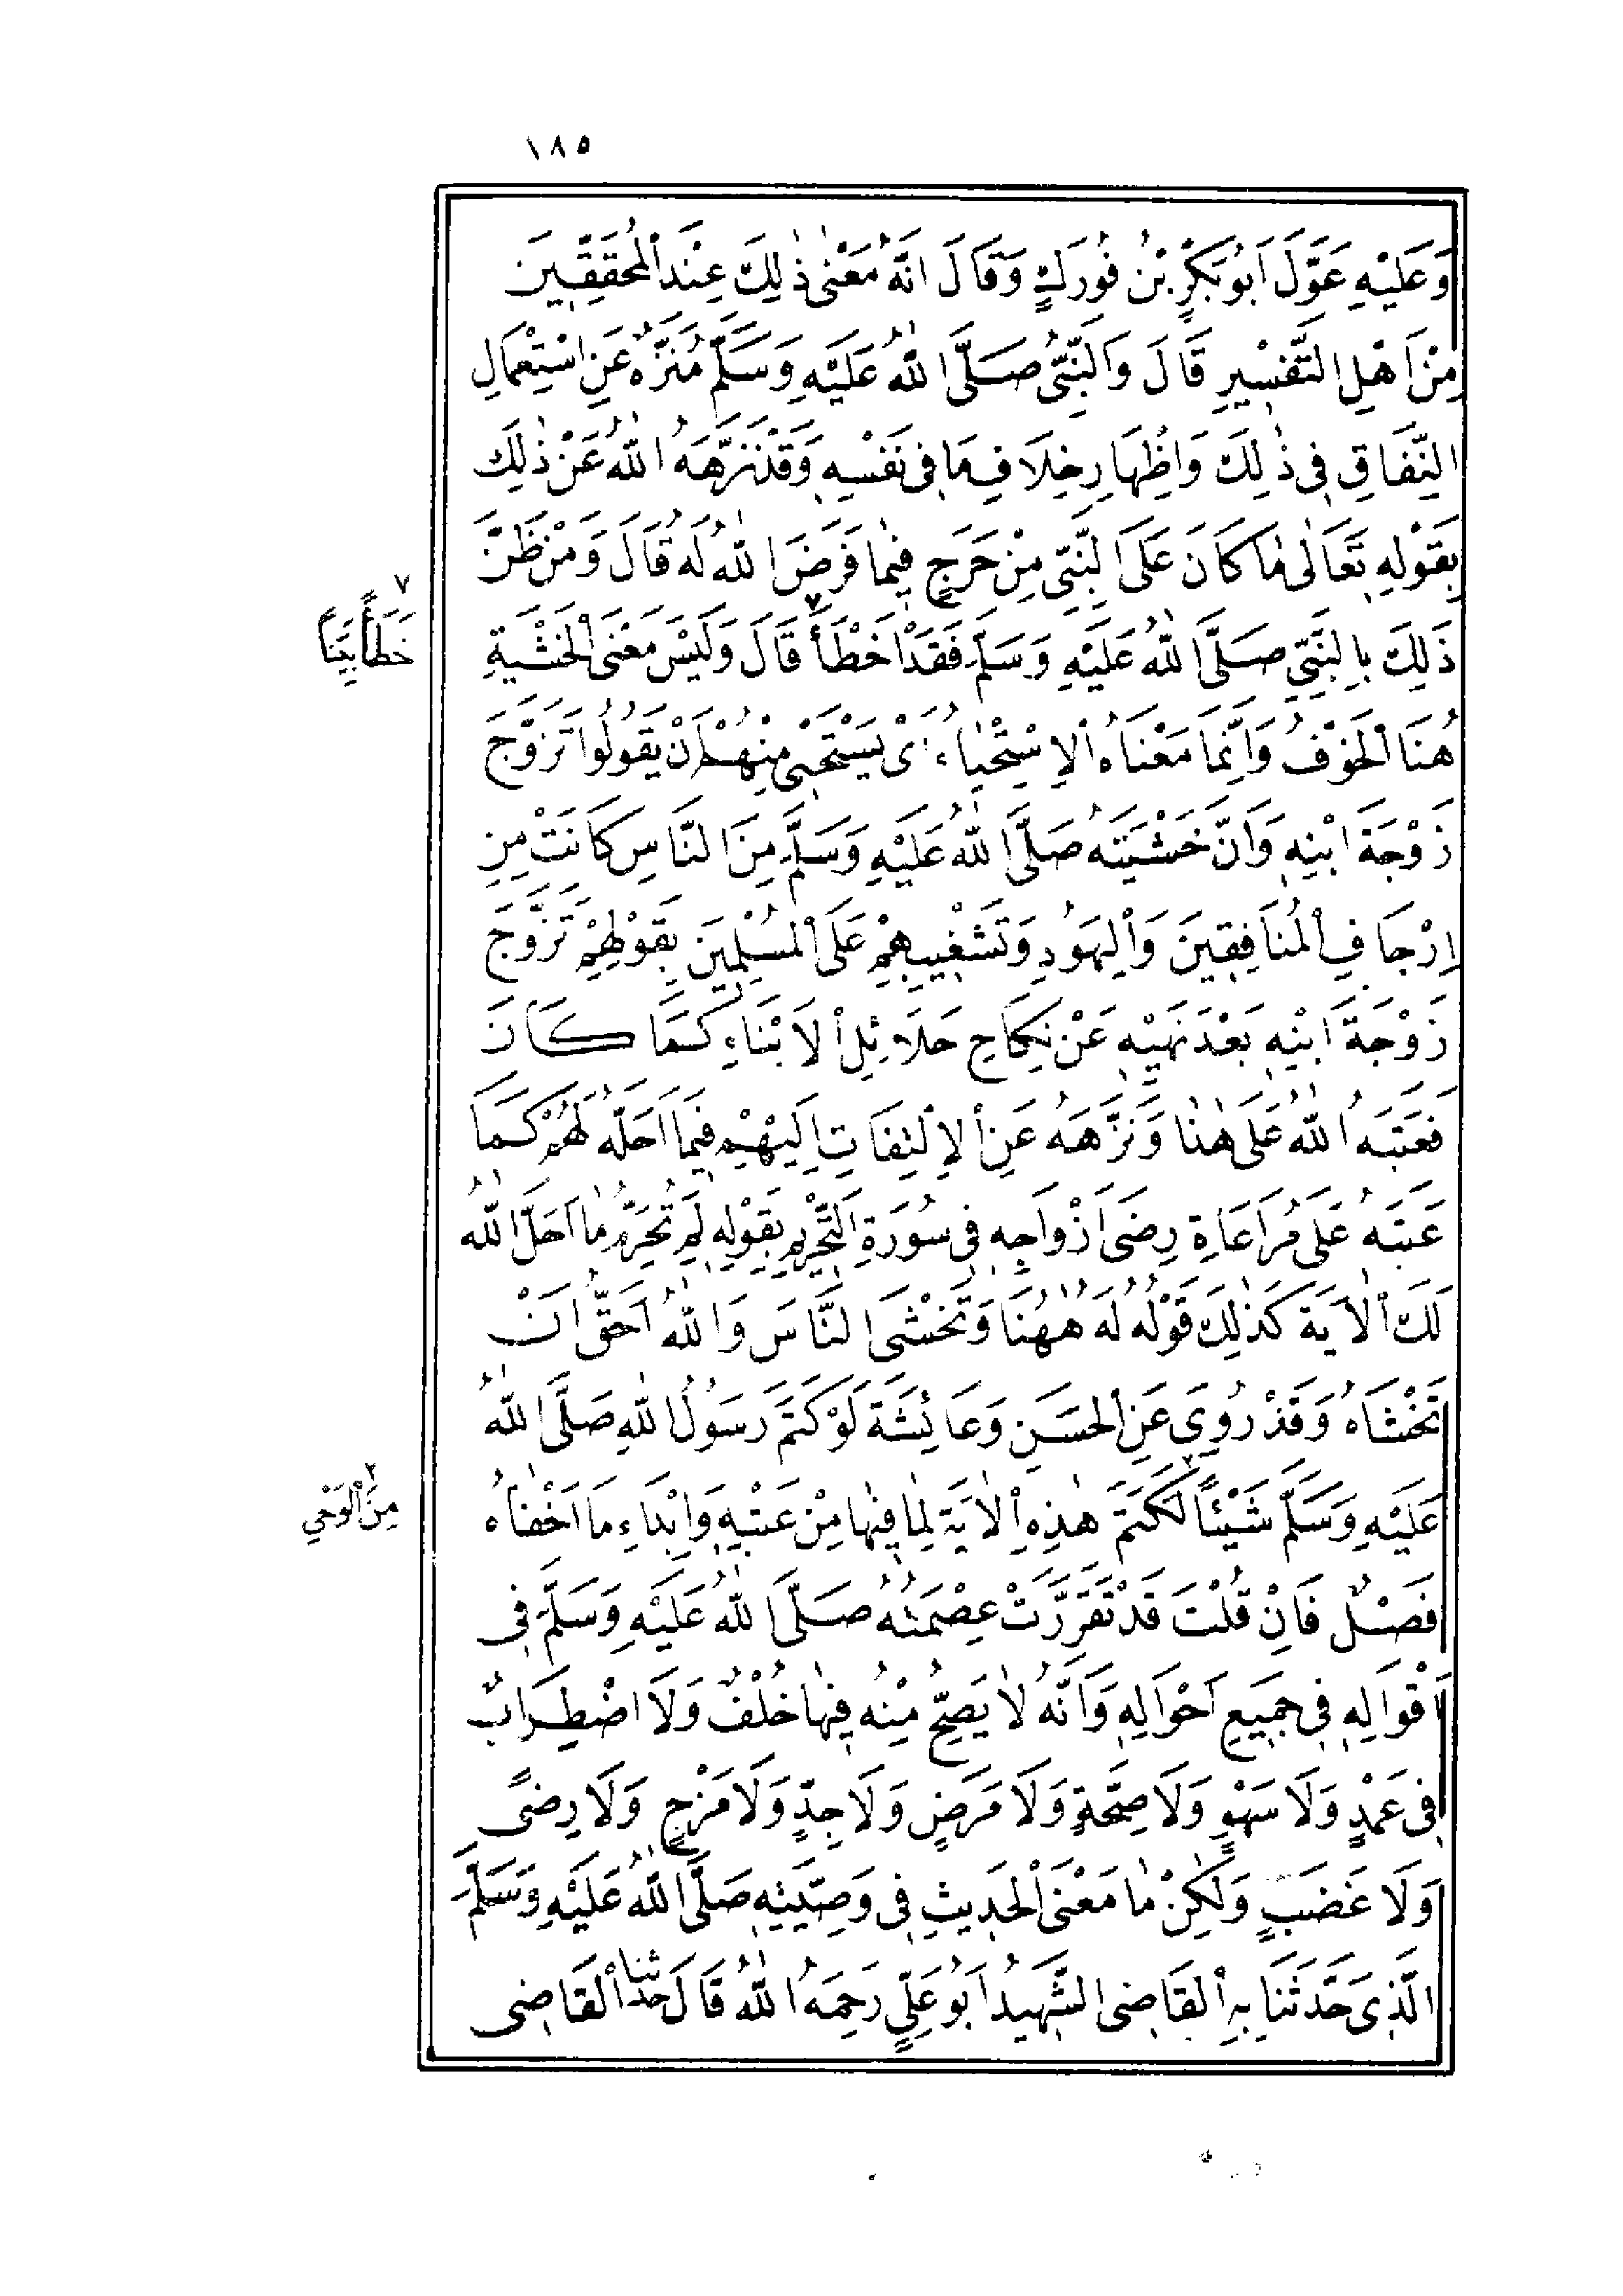 ١٨٥
وَعَلَيْهِ عَوَّلَ اَبُو بَكْرِ بْنُ فُورَكٍ وَقَالَ اِنَّهُ مَعْنٰى ذٰلِكَ عِنْدَ الْمُحَقِّقِينَ
مِنْ اَهْلِ التَّفْسِيرِ قَالَ وَالنَّبِىُّ صَلَّى اللّٰهُ عَلَيْهِ وَسَلَّمَ مُنَزَّهٌ عَنِ اسْتِعْمَالِ
النِّفَاقِ فِى ذٰلِكَ وَاِظْهَارِ خِلَافِ مَا فِى نَفْسِهِ وَقَدْ نَزَّهَهُ اللّٰهُ عَنْ ذٰلِكَ
بِقَوْلِهِ تَعَالٰى مَا كَانَ عَلَى النَّبِىِّ مِنْ حَرَجٍ فِيمَا فَرَضَ اللّٰهُ لَهُ قَالَ وَمَنْ ظَنَّ
ذَلِكَ بِالنَّبِىِّ صَلَّى اللّٰهُ عَلَيْهِ وَسَلَّمَ فَقَدْ اَخْطَأَ ٧ قَالَ وَلَيْسَ مَعْنَى الْخَشْيَةِ
٧ خَطَأً بَيِّنًا
هُنَا الْخَوْفُ وَاِنَّمَا مَعْنَاهُ الْاِسْتِحْيَاءُ اَىْ يَسْتَحْيِى مِنْهُمْ اَنْ يَقُولُوا تَزَوَّجَ
زَوْجَةَ ابْنِهِ وَاَنَّ خَشْيَتَهُ صَلَّى اللّٰهُ عَلَيْهِ وَسَلَّمَ مِنَ النَّاسِ كَانَتْ مِنِ
اِرْجَافِ الْمُنَافِقِينَ وَالْيَهُودِ وَتَشْغِيبِهِمْ عَلَى الْمُسْلِمِينَ بِقَوْلِهِمْ تَزَوَّجَ
زَوْجَةَ ابْنِهِ بَعْدَ نَهْيِهِ عَنْ نِكَاحِ حَلَائِلِ الْاَبْنَاءِ كَمَا كَانَ
فَعَتَبَهُ اللّٰهُ عَلَى هٰذَا وَنَزَّهَهُ عَنِ الْاِلْتِفَاتِ اِلَيْهِمْ فِيمَا اَحَلَّهُ لَهُمْ كَمَا
عَتَبَهُ عَلَى مُرَاعَاةِ رِضَى اَزْوَاجِهِ فِى سُورَةِ التَّحْرِيمِ بِقَوْلِهِ لِمَ تُحَرِّمُ مَا اَحَلَّ اللّٰهُ
لَكَ الْاٰيَةَ كَذٰلِكَ قَوْلُهُ لَهُ هٰهُنَا وَتَخْشَى النَّاسَ وَاللّٰهُ اَحَقُّ اَنْ
تَخْشَاهُ وَقَدْ رُوِىَ عَنِ الْحَسَنِ وَعَائِشَةَ لَوْ كَتَمَ رَسُولُ اللّٰهِ صَلَّى اللّٰهُ
عَلَيْهِ وَسَلَّمَ شَيْئًا ٢ لَكَتَمَ هٰذِهِ الْاٰيَةَ لِمَا فِيهَا مِنْ عَتْبِهِ وَاِبْدَاءِ مَا اَخْفَاهُ
٢ مِنَ الْوَحْيِ
فَصْلٌ فَاِنْ قُلْتَ قَدْ تَقَرَّرَتْ عِصْمَتُهُ صَلَّى اللّٰهُ عَلَيْهِ وَسَلَّمَ فِى
اَقْوَالِهِ فِى جَمِيعِ اَحْوَالِهِ وَاَنَّهُ لَا يَصِحُّ مِنْهُ فِيهَا خُلْفٌ وَلَا اضْطِرَابٌ
فِى عَمْدٍ وَلَا سَهْوٍ وَلَا صِحَّةٍ وَلَا مَرَضٍ وَلَا جِدٍّ وَلَا مَزْحٍ وَلَا رِضىً
وَلَا غَضَبٍ وَلٰكِنْ مَا مَعْنَى الْحَدِيثِ فِى وَصِيَّتِهِ صَلَّى اللّٰهُ عَلَيْهِ وَسَلَّمَ
الَّذِى حَدَّثَنَا بِهِ الْقَاضِى الشَّهِيدُ اَبُو عَلِيٍّ رَحِمَهُ اللّٰهُ قَالَ حَدَّثَنَا الْقَاضِى